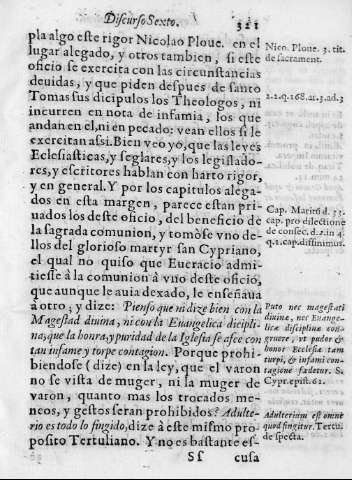 Discurso Sexto.
321
pla algo este rigor Nicolao Ploue. en el
lugar alegado, y otros tambien, si este
oficio se exercita con las circunstancias
deuidas, y que piden despues de santo
Tomas sus dicipulos los Theologos, ni
incurren en nota de infamia, los que
andan en el, ni en pecado: vean ellos si le
exercitan assi. Bien veo yo, que las leyes
Eclesiasticas, y seglares, y los legislado-
res, y escritores hablan con harto rigor,
y en general. Y por los capitulos alega-
dos en esta margen, parece estan pri-
uados los deste oficio, del beneficio de
la sagrada comunion, y tomòse vno de-
llos del glorioso martyr san Cypriano,
el qual no quiso que Eucracio admi-
tiesse à la comunion à vno deste oficio,
que aunque le auia dexado, le enseñaua
à otro, y dize: Pienso que ni dize bien con la
Magestad diuina, ni con la Euangelica dicipli-
na; que la honra, y puridad de la Iglesia se afee con
tan infame y torpe contagion. Porque prohi-
biendose (dize) en la ley, que el varon
no se vista de muger, ni la muger de
varon, quanto mas los trocados me-
neos, y gestos seran prohibidos? Adulte-
rio es todo lo fingido, dize à este mismo pro-
posito Tertuliano. Y no es bastante es-
Sf
cusa
Nico. Ploue. 3. tit.
de sacrament.
2.2.q.168.ar.3.ad.3
Cap. Maritũ d. 33.
cap. pro dilectione
de consec. d.2. in 4.
q.1.cap.diffinimus.
Puto nec magestati
diuinæ, nec Euange-
licæ disciplinæ con-
gruere, vt pudor &
honor Ecclesiæ tam
turpi, & infami con-
tagione fædetur. S.
Cypr. epist. 61.
Adulterium est omne
quod fingitur. Tertu.
de specta.